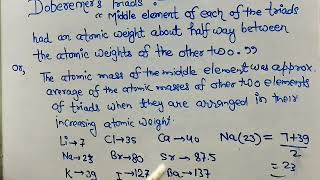 Dobereiner's Triads :
" Middle element of each of the triads
had an atomic weight about half way between
the atomic weights of the other two."
or, The atomic mass of the middle element was approx.
average of the atomic masses of other two elements
of triads when they are arranged in their
increasing atomic weight.
Li→7 Cl→35 Ca→40 Na(23) = 7+39/2
Na→23 Br→80 Sr→87.5 = 23
K→39 I→127 Ba→137